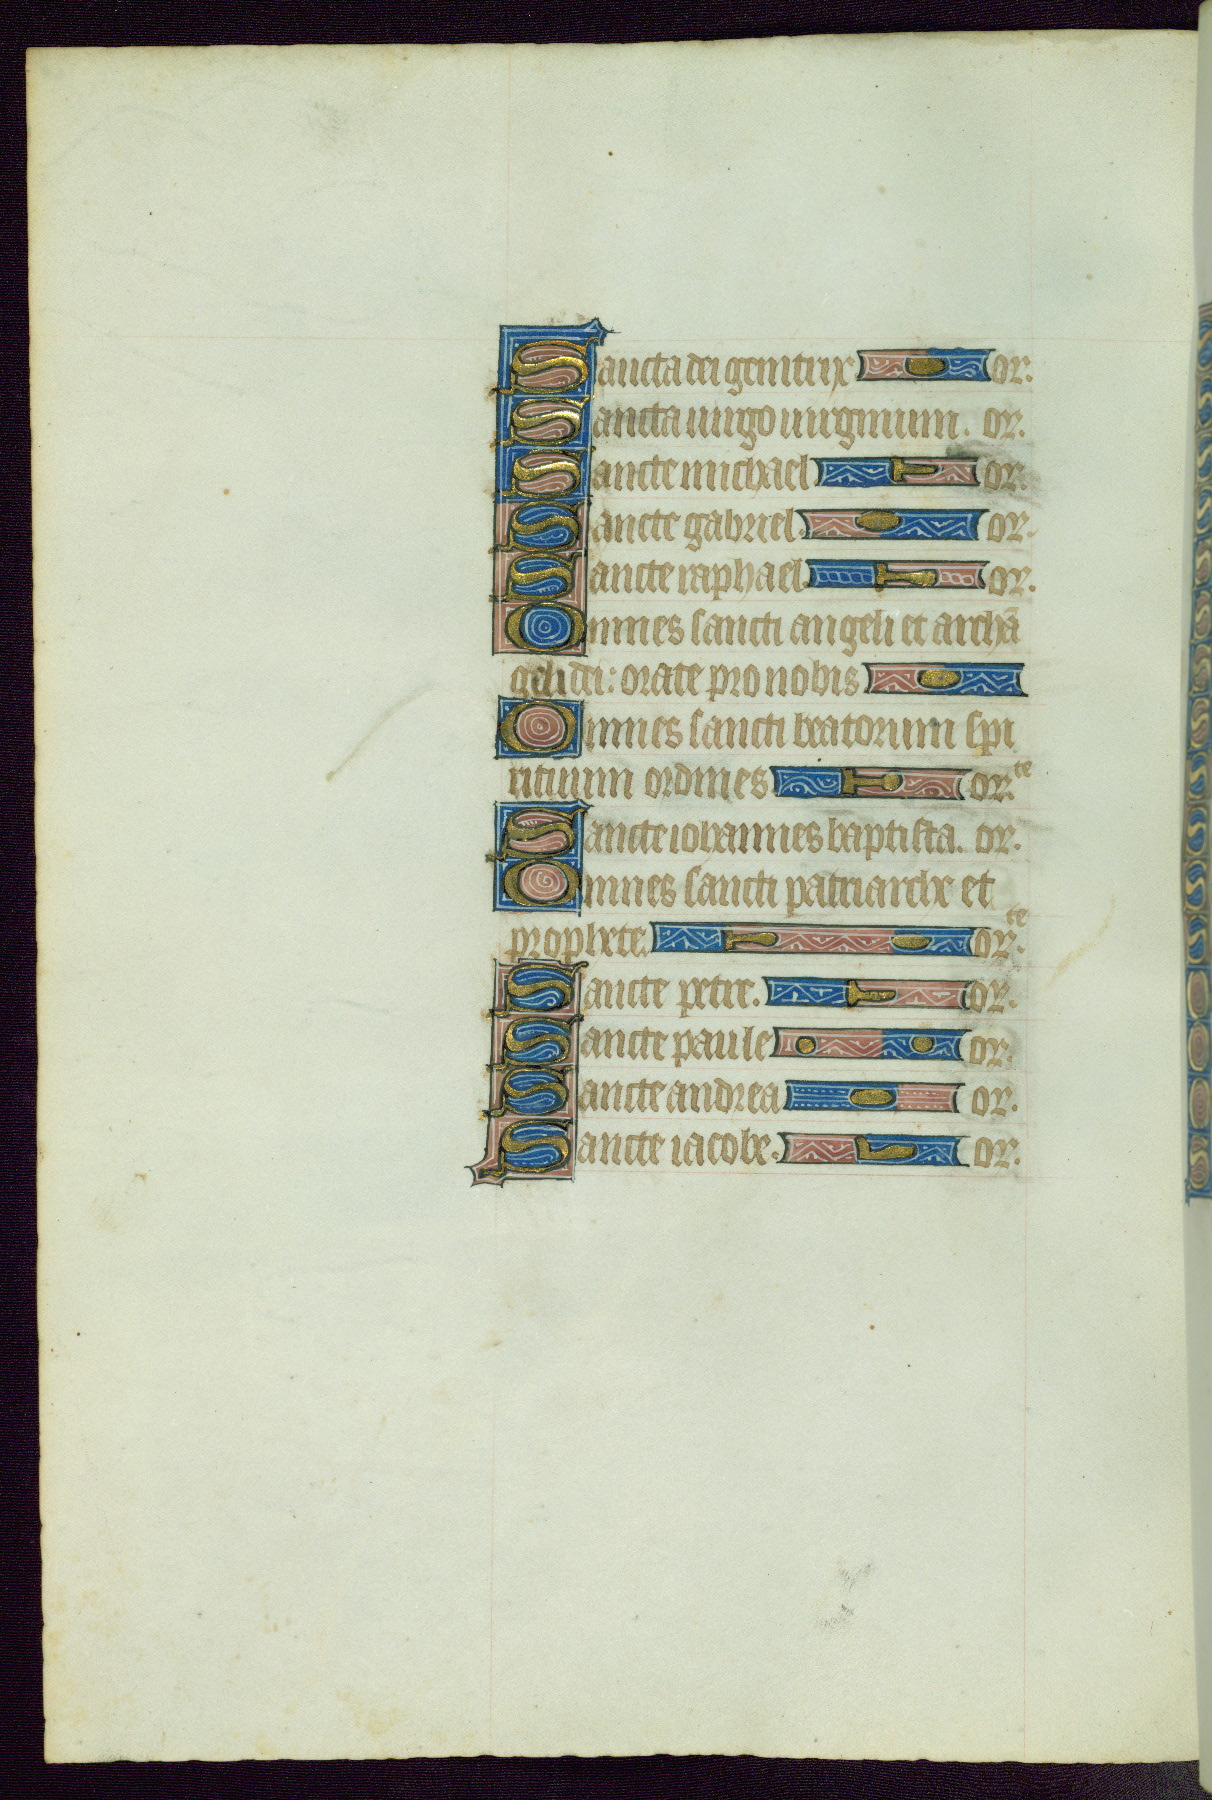 Sancta dei genitrix or.
Sancta uirgo uirginum. or.
Sancte michael or.
Sancte gabriel. or.
Sancte raphael or.
Omnes sancti angeli et archã
geli dei: orate pro nobis
Omnes sancti beatorum spi
rituum ordines orte
Sancte iohannes baptista. or.
Omnes sancti patriarche et
prophete. orte.
Sancte petre. or.
Sancte paule or.
Sancte andrea or.
Sancte iacobe. or.